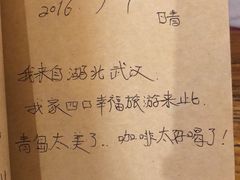 2016. 7. 1
晴
我来自湖北武汉.
我家四口幸福旅游来此.
青岛太美了.. 咖啡太好喝了!